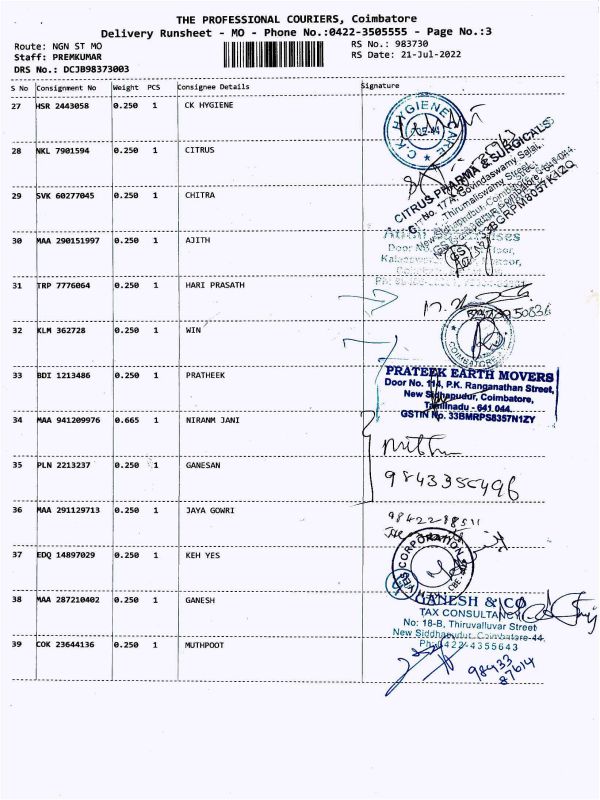 THE PROFESSIONAL COURIERS, Coimbatore
Delivery Runsheet - MO - Phone No.:0422-3505555 - Page No.:3
Route: NGN ST MO
RS No.: 983730
Staff: PREMKUMAR
RS Date: 21-Jul-2022
DRS No.: DCJB98373003
S No Consignment No Weight PCS Consignee Details Signature
27 HSR 2443058 0.250 1 CK HYGIENE
C.K. HYGIENE
28 NKL 7901594 0.250 1 CITRUS
CITRUS PHARMA & SURGICALS
29 SVK 60277045 0.250 1 CHITRA
30 MAA 290151997 0.250 1 AJITH
31 TRP 7776064 0.250 1 HARI PRASATH
32 KLM 362728 0.250 1 WIN
COIMBATORE
33 BDI 1213486 0.250 1 PRATHEEK
PRATEEK EARTH MOVERS
Door No. 114, P.K. Ranganathan Street,
New Sidhapudur, Coimbatore,
Tamilnadu - 641 044.
GSTIN No. 33BMRPS8357N1ZY
34 MAA 941209976 0.665 1 NIRANM JANI
35 PLN 2213237 0.250 1 GANESAN
9843356496
36 MAA 291129713 0.250 1 JAYA GOWRI
37 EDQ 14897029 0.250 1 KEH YES
YES CORPORATION
38 MAA 287210402 0.250 1 GANESH
GANESH & CO
TAX CONSULTANCY
No: 18-B, Thiruvalluvar Street
New Siddhapudur, Coimbatore-44.
Ph: 0422-4355643
39 COK 23644136 0.250 1 MUTHPOOT
98433
87614